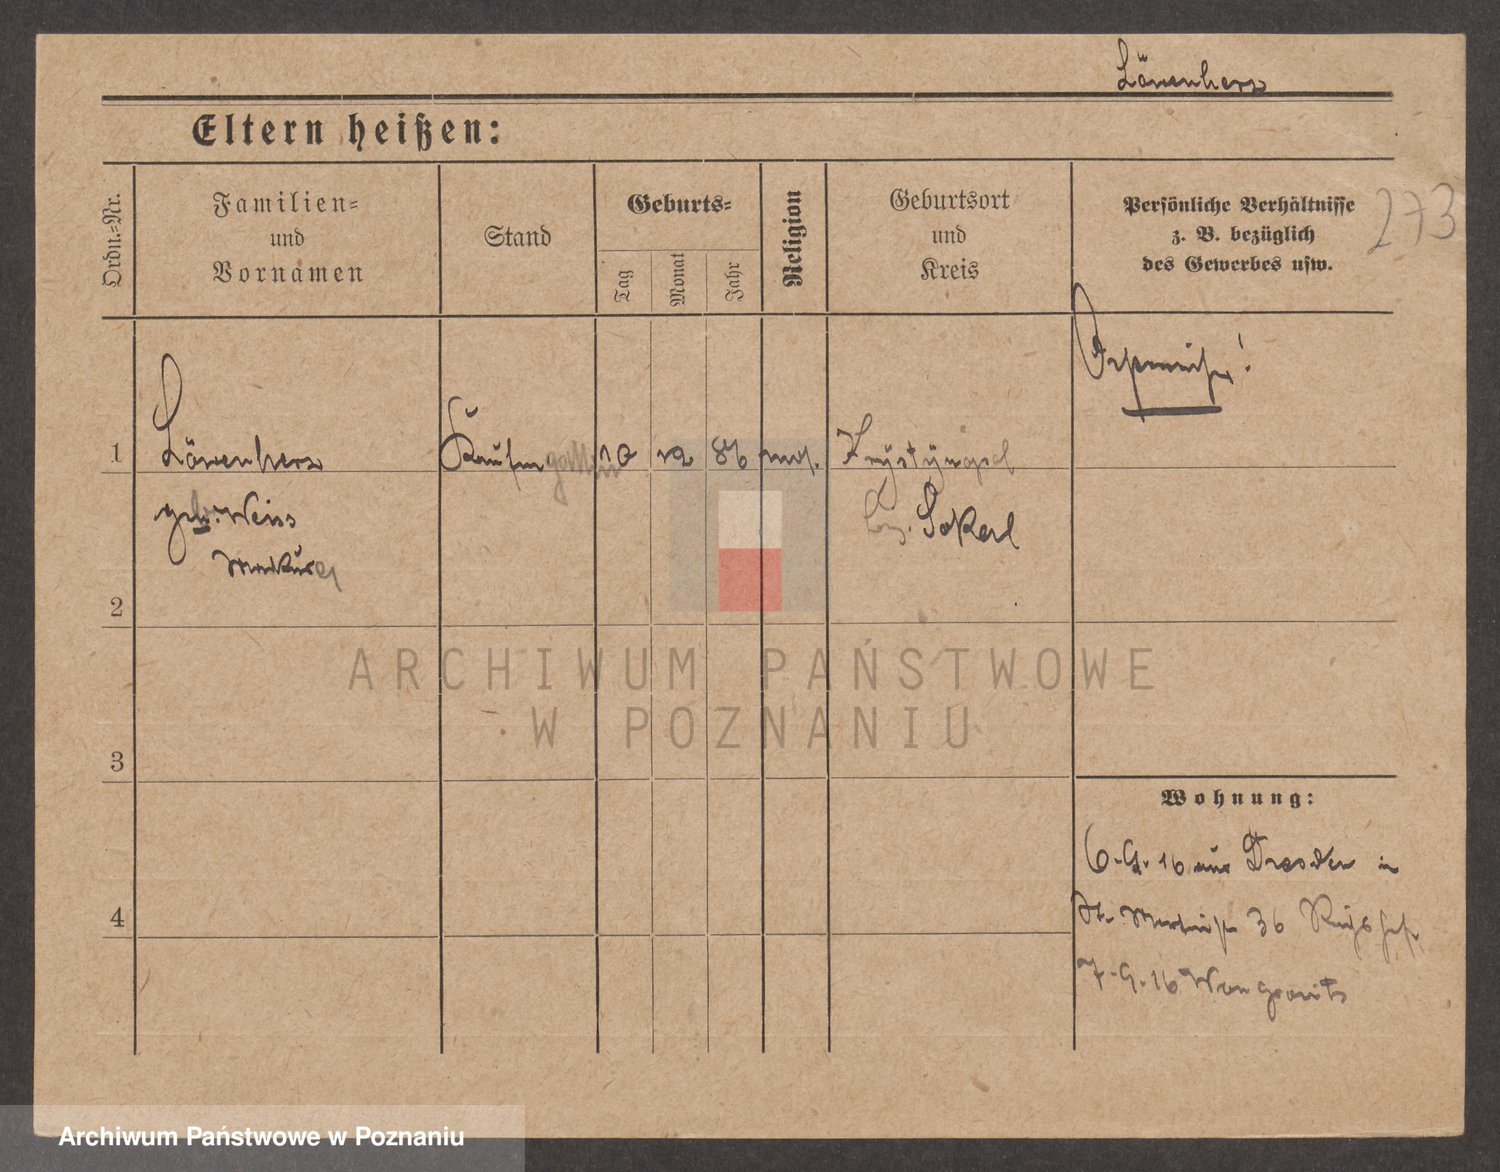 Löwenherz
Eltern heißen:
Ordn.-Nr.
Familien-
und
Vornamen
Stand
Geburts-
Tag
Monat
Jahr
Religion
Geburtsort
und
Kreis
Persönliche Verhältnisse
z. B. bezüglich
des Gewerbes usw.
273
1
Löwenherz
10
12
86
mos.
geb. Weiss
Bez. Sokal
2
3
4
Wohnung:
6.9.16 aus Dresden in
St. Martinstr 36
7.9.16 Wongrowitz
ARCHIWUM PAŃSTWOWE
W POZNANIU
Archiwum Państwowe w Poznaniu